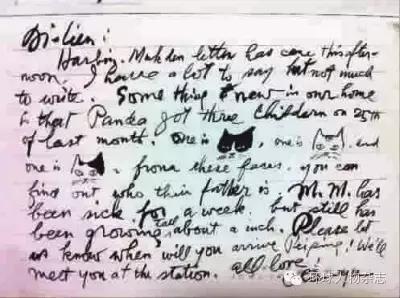 Di-lien:
Harbin - Mukden letter has come this after-
noon. I have a lot to say but not much
to write. Some thing new in our home
is that Panda got three Childern on 25th
of last month. One is , one is , and
one is . from these faces. you can
find out who their father is. M.M. has
been sick for a week. but still has
been growing tall about a inch. Please let
us know when will you arrive Peiping! We'll
meet you at the station. all love!
环球人物杂志